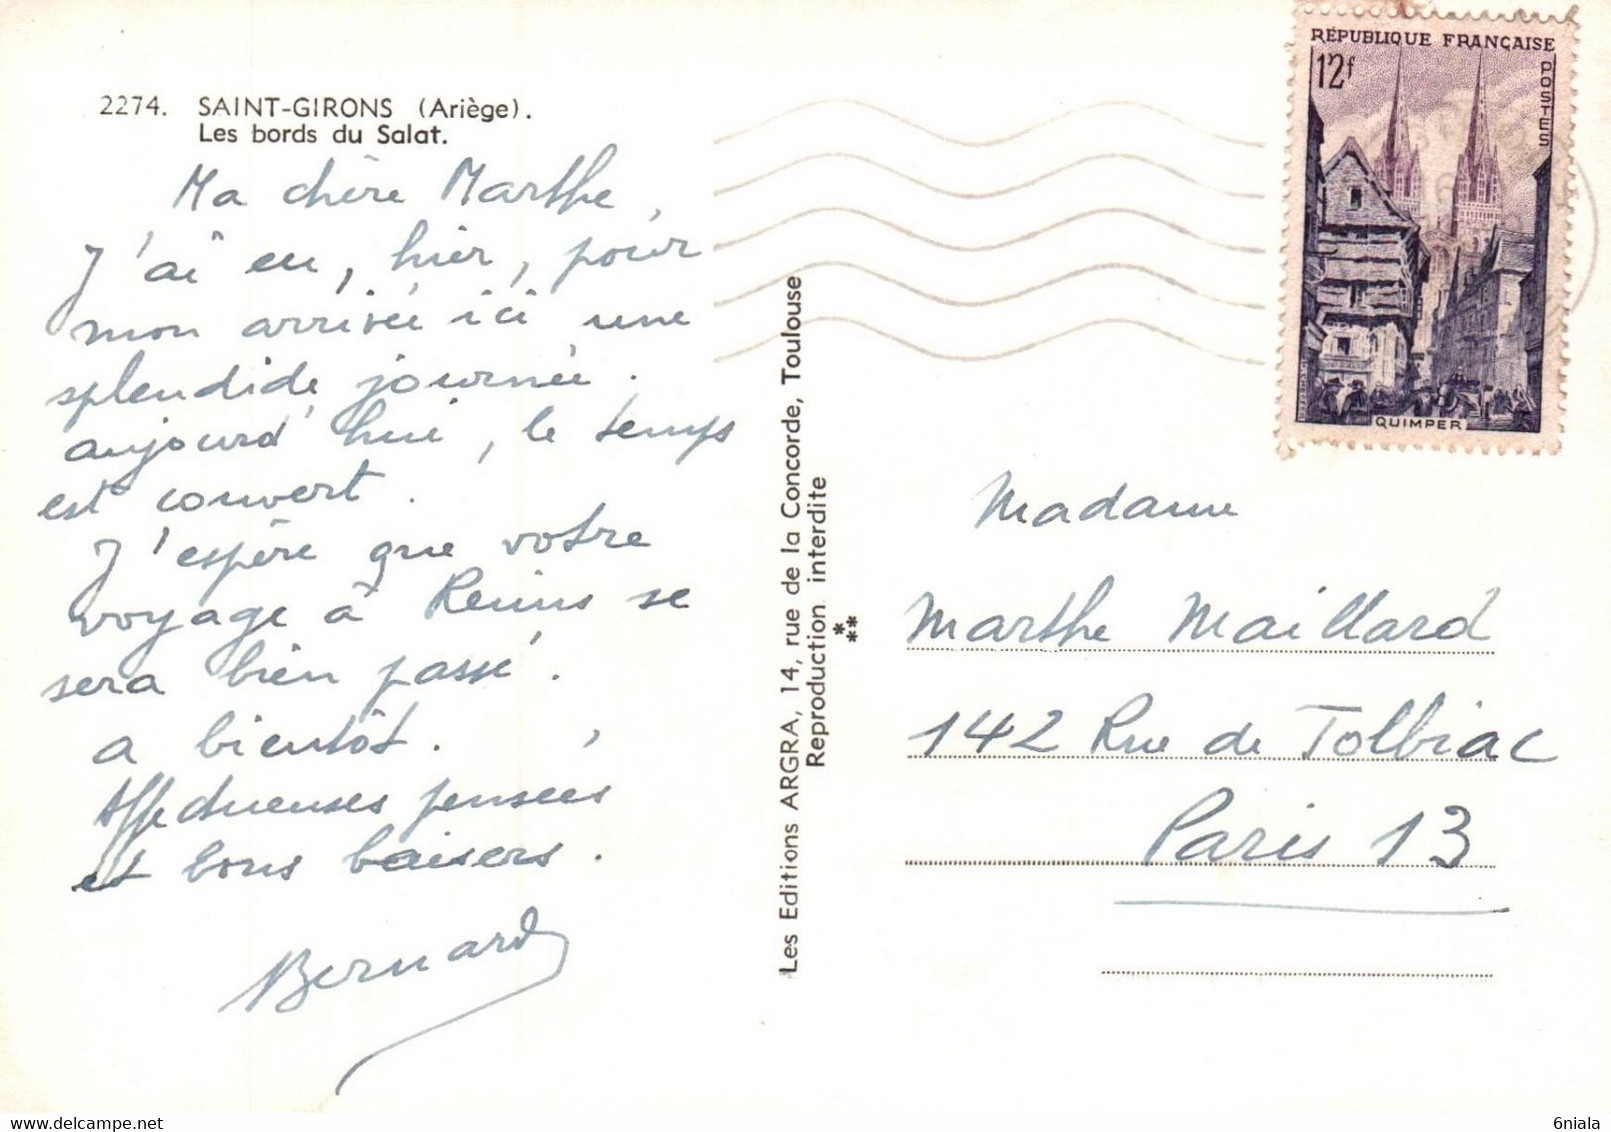 2274. SAINT-GIRONS (Ariège).
Les bords du Salat.
Ma chère Marthe,
J'ai eu, hier, pour
mon arrivée ici une
splendide journée.
aujourd'hui, le temps
est couvert.
J'espère que votre
voyage à Reims se
sera bien passé.
a bientôt.
Affectueuses pensées
et bons baisers.
Bernard
Les Editions ARGRA, 14, rue de la Concorde, Toulouse
Reproduction interdite
***
RÉPUBLIQUE FRANÇAISE
12f
POSTES
QUIMPER
Madame
Marthe Maillard
142 Rue de Tolbiac
Paris 13
6niala